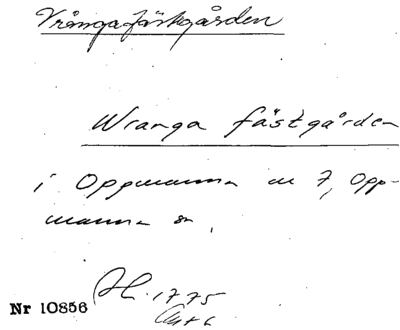 Vrångafästgården
Wranga fästgården
i Oppmanna nr 7, Opp-
manna sn,
H. 1775
Nr 10856